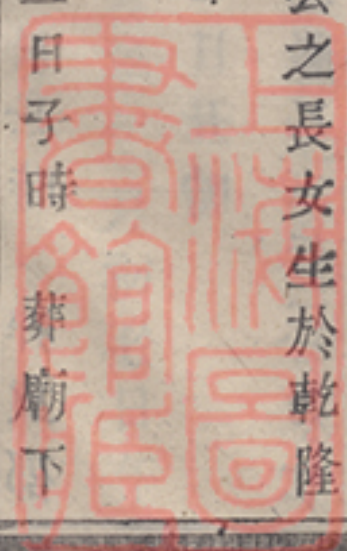 之長女生於乾隆
日子時 葬廟下
上海圖書館藏